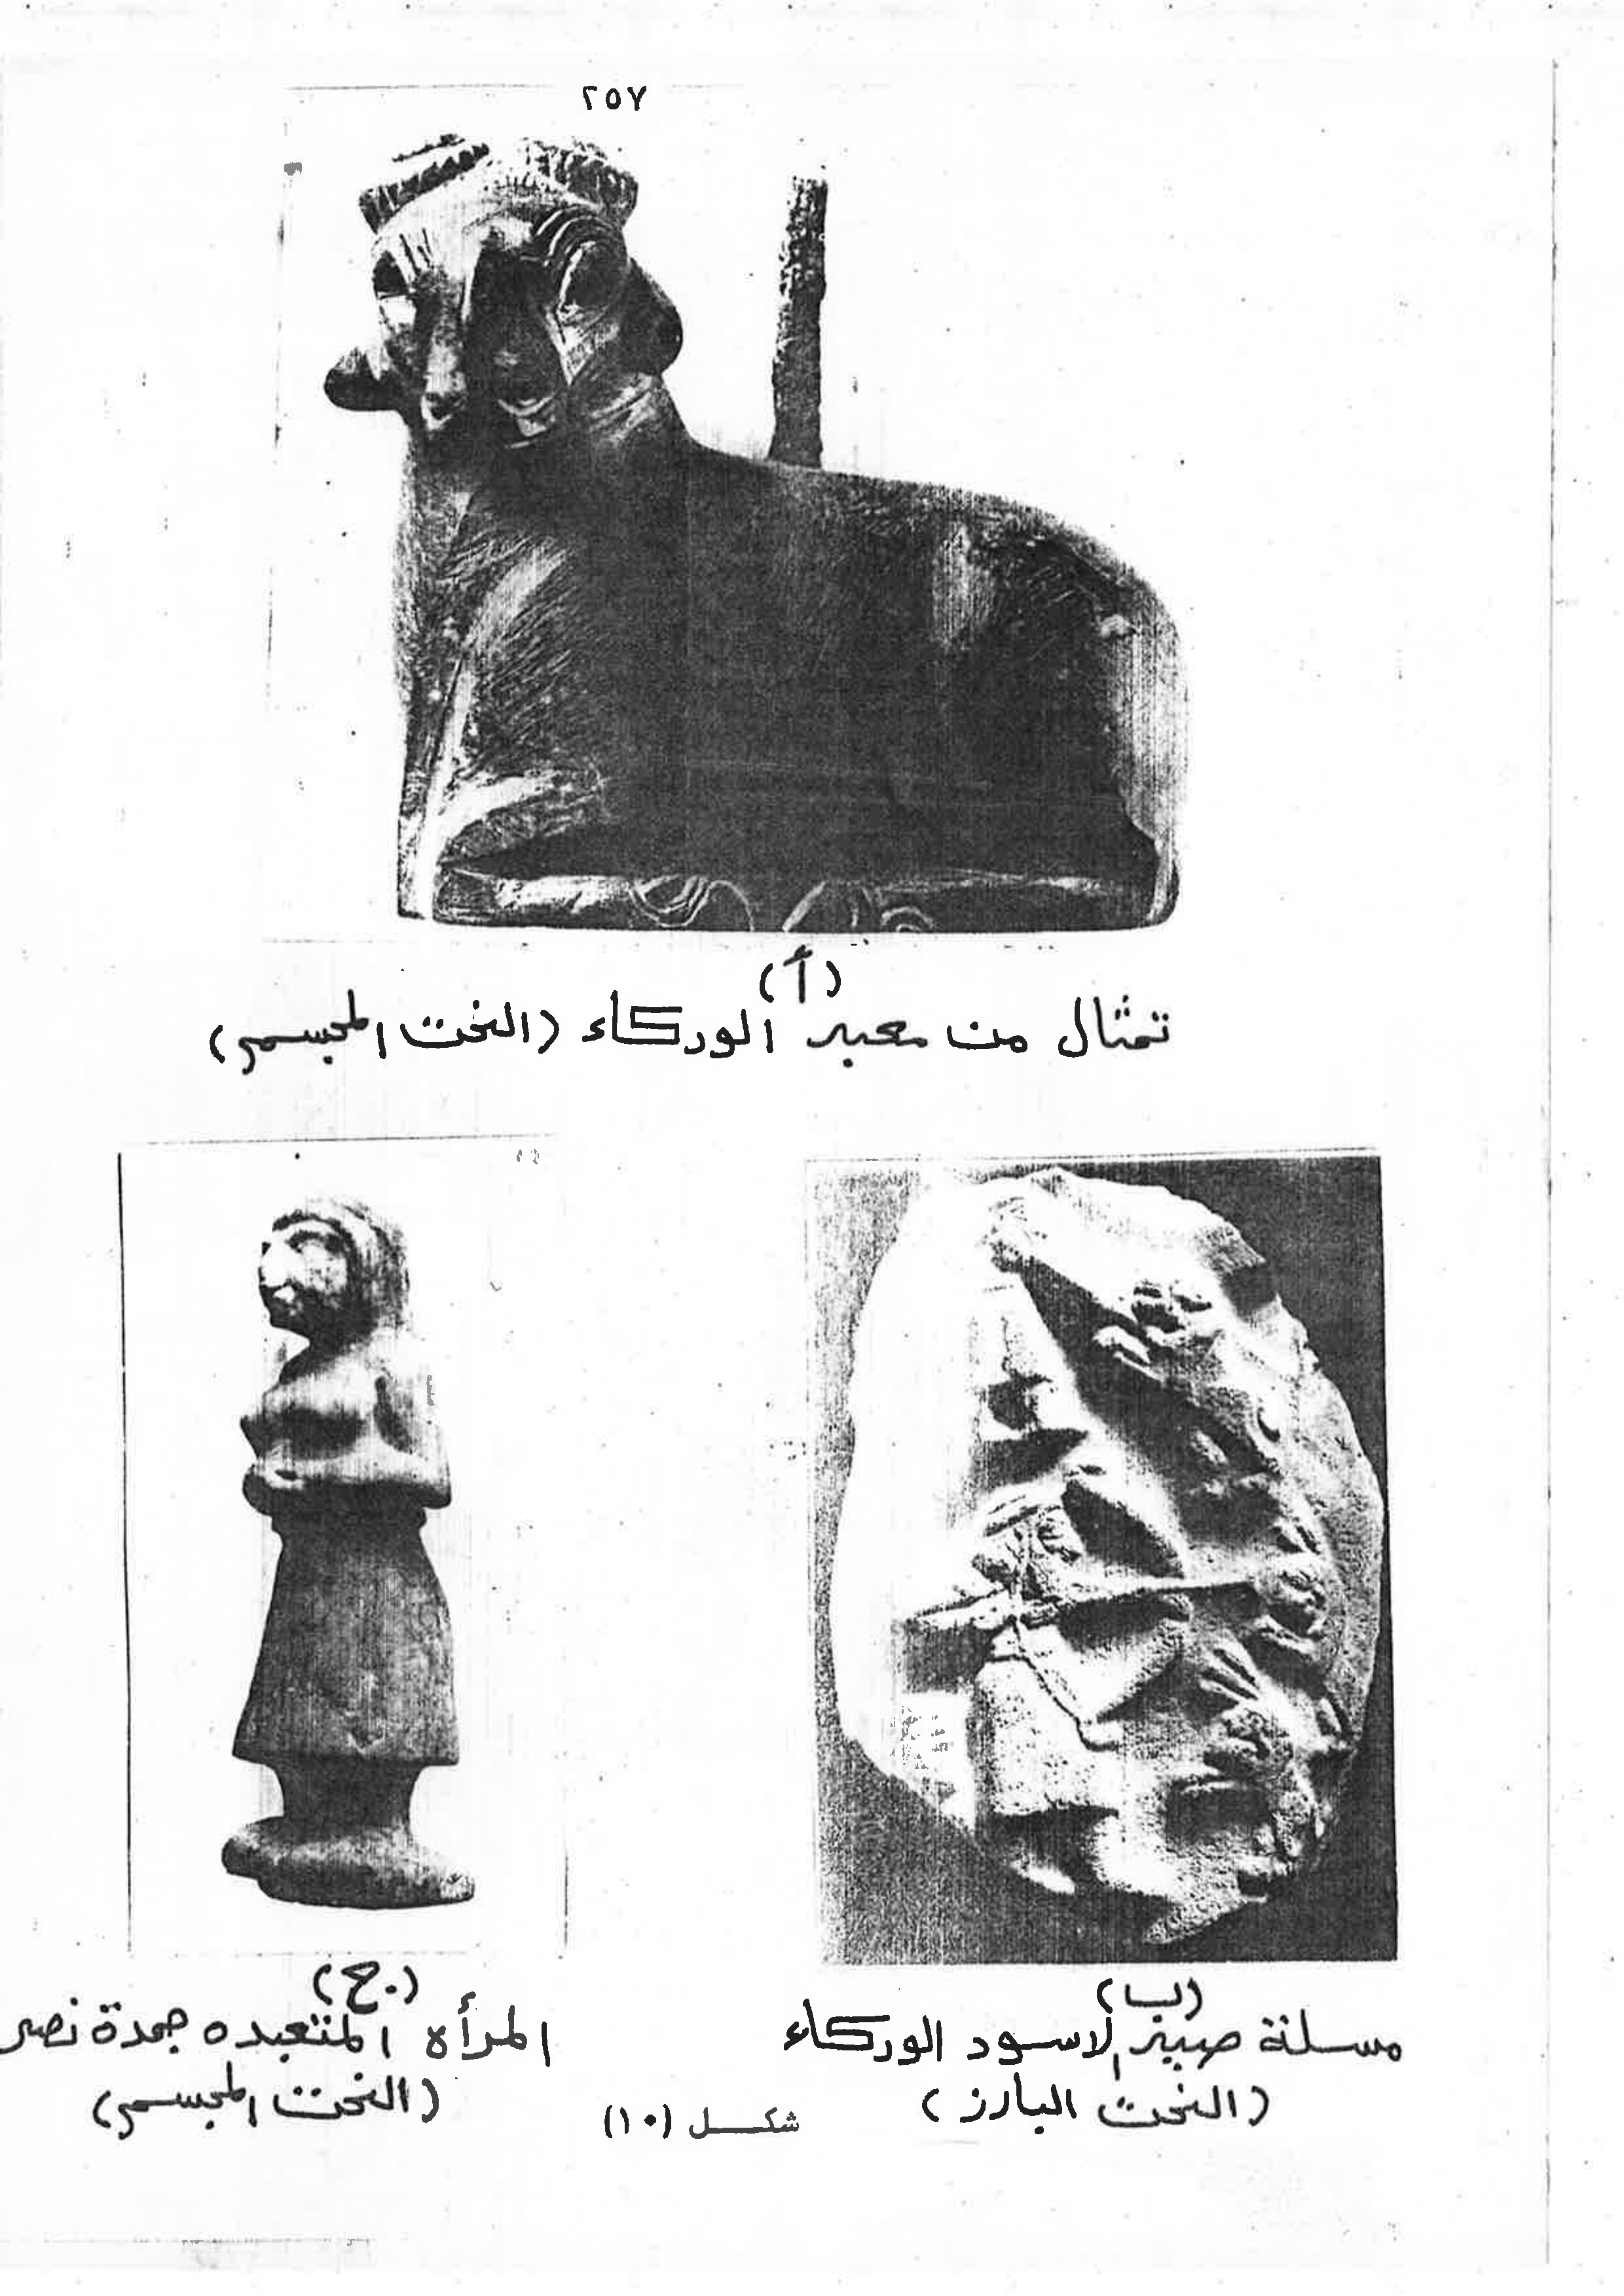 ٢٥٧
(أ)
تمثال من معبد الوركاء (النحت المجسم)
(ب)
مسلة صيد الاسود الوركاء
(النحت البارز)
(ج)
المرأة المتعبده جمدة نصر
(النحت المجسم)
شكل (١٠)